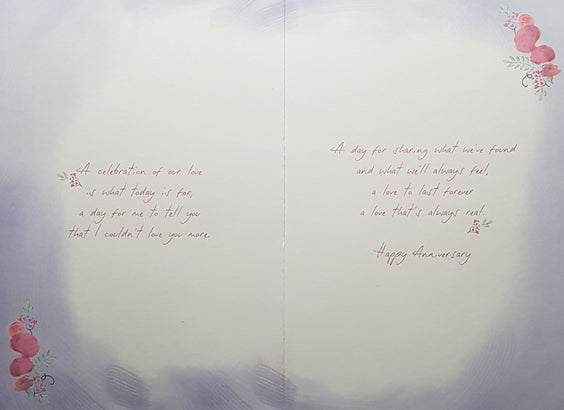 A celebration of our love
is what today is for,
a day for me to tell you
that I couldn't love you more.
A day for sharing what we've found
and what we'll always feel,
a love to last forever
a love that's always real.
Happy Anniversary